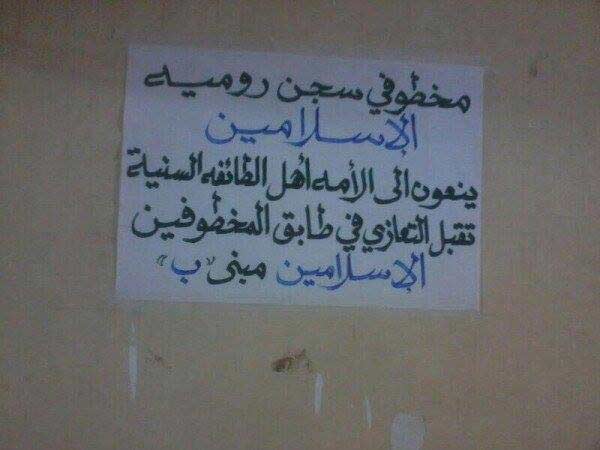 مخطوفي سجن روميه
الإسلامين
ينعون الى الأمه أهل الطائفه السنية
تقبل التعازي في طابق المخطوفين
الإسلامين مبنى "ب"